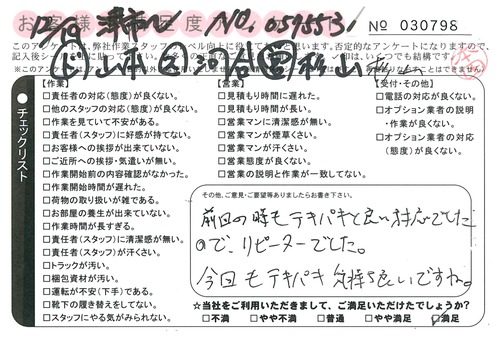 No 030798
No, 0595531
【作業】
□責任者の対応(態度)が良くない。
□他のスタッフの対応(態度)が良くない。
□作業を見ていて不安がある。
□責任者(スタッフ)に好感が持てない。
□お客様への挨拶が出来ていない。
□ご近所への挨拶・気遣いが無い。
□作業開始前の内容確認がなかった。
□作業開始時間が遅れた。
□荷物の取り扱いが雑である。
□お部屋の養生が出来ていない。
□作業時間が長すぎる。
□責任者(スタッフ)に清潔感が無い。
□責任者(スタッフ)が汗くさい。
□トラックが汚い。
□梱包資材が汚い。
□運転が不安(下手)である。
□靴下の履き替えをしてない。
□スタッフにやる気がみられない。
【営業】
□見積もり時間に遅れた。
□見積もり時間が長い。
□営業マンに清潔感が無い。
□営業マンが煙草くさい。
□営業マンが汗くさい。
□営業態度が良くない。
□営業の説明と作業が一致してない。
【受付・その他】
□電話の対応が良くない。
□オプション業者の説明
・作業が良くない。
□オプション業者の対応
(態度)が良くない。
チェックリスト
その他、ご意見・ご要望等ありましたらお書き下さい。
前回の時もテキパキと良い対応でした
ので、リピーターでした。
今回もテキパキ気持ち良いですね。
★当社をご利用いただきまして、ご満足いただけたでしょうか?
□不満 □やや不満 □普通 □やや満足 □満足